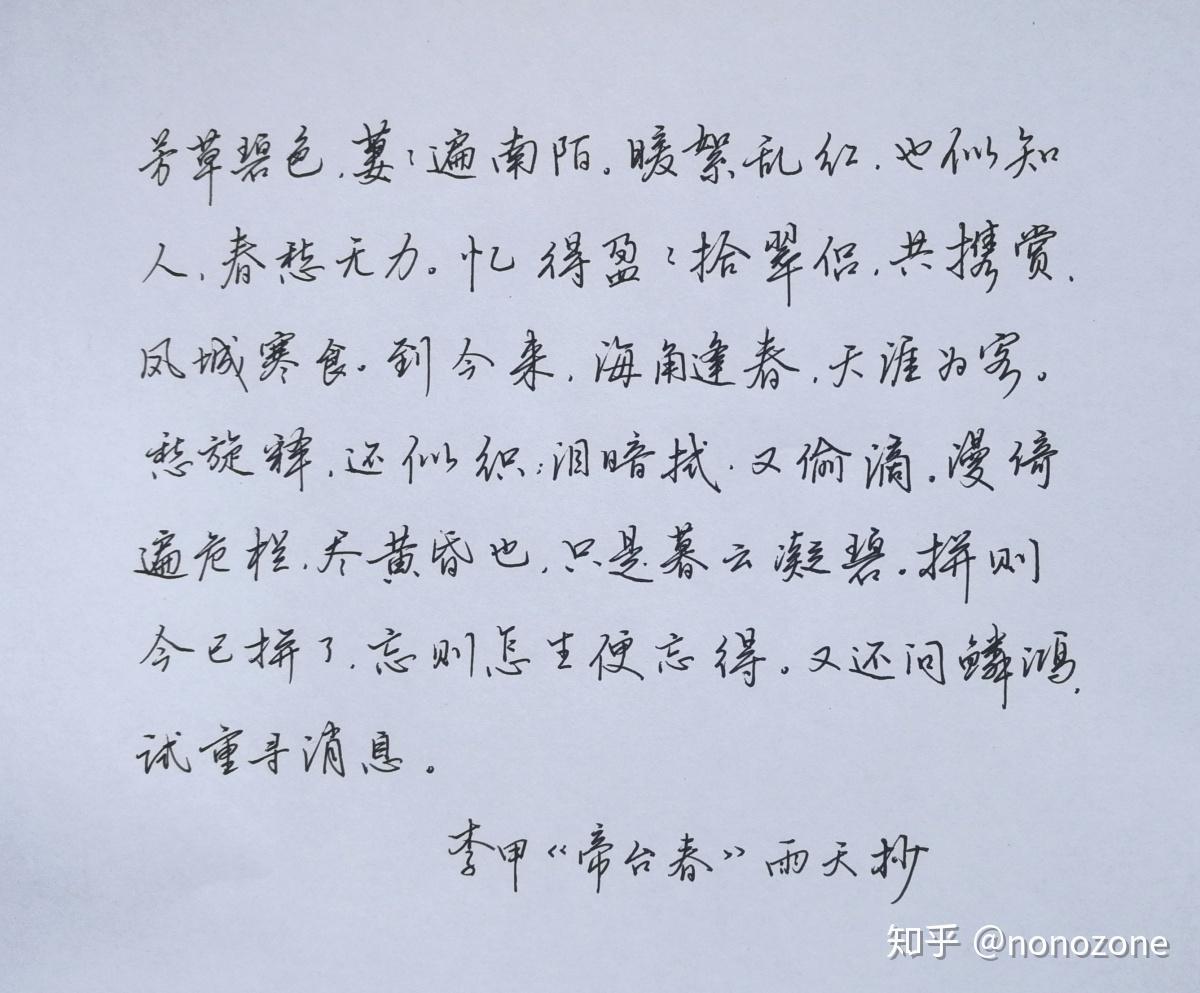 芳草碧色，萋々遍南陌。暖絮乱红，也似知
人，春愁无力。忆得盈々拾翠侣，共携赏，
凤城寒食。到今来，海角逢春，天涯为客。
愁旋释，还似织；泪暗拭，又偷滴。漫倚
遍危栏，尽黄昏也，只是暮云凝碧。拼则
今已拼了，忘则怎生便忘得。又还问鳞鸿，
试重寻消息。
李甲《帝台春》雨天抄
知乎 @nonozone